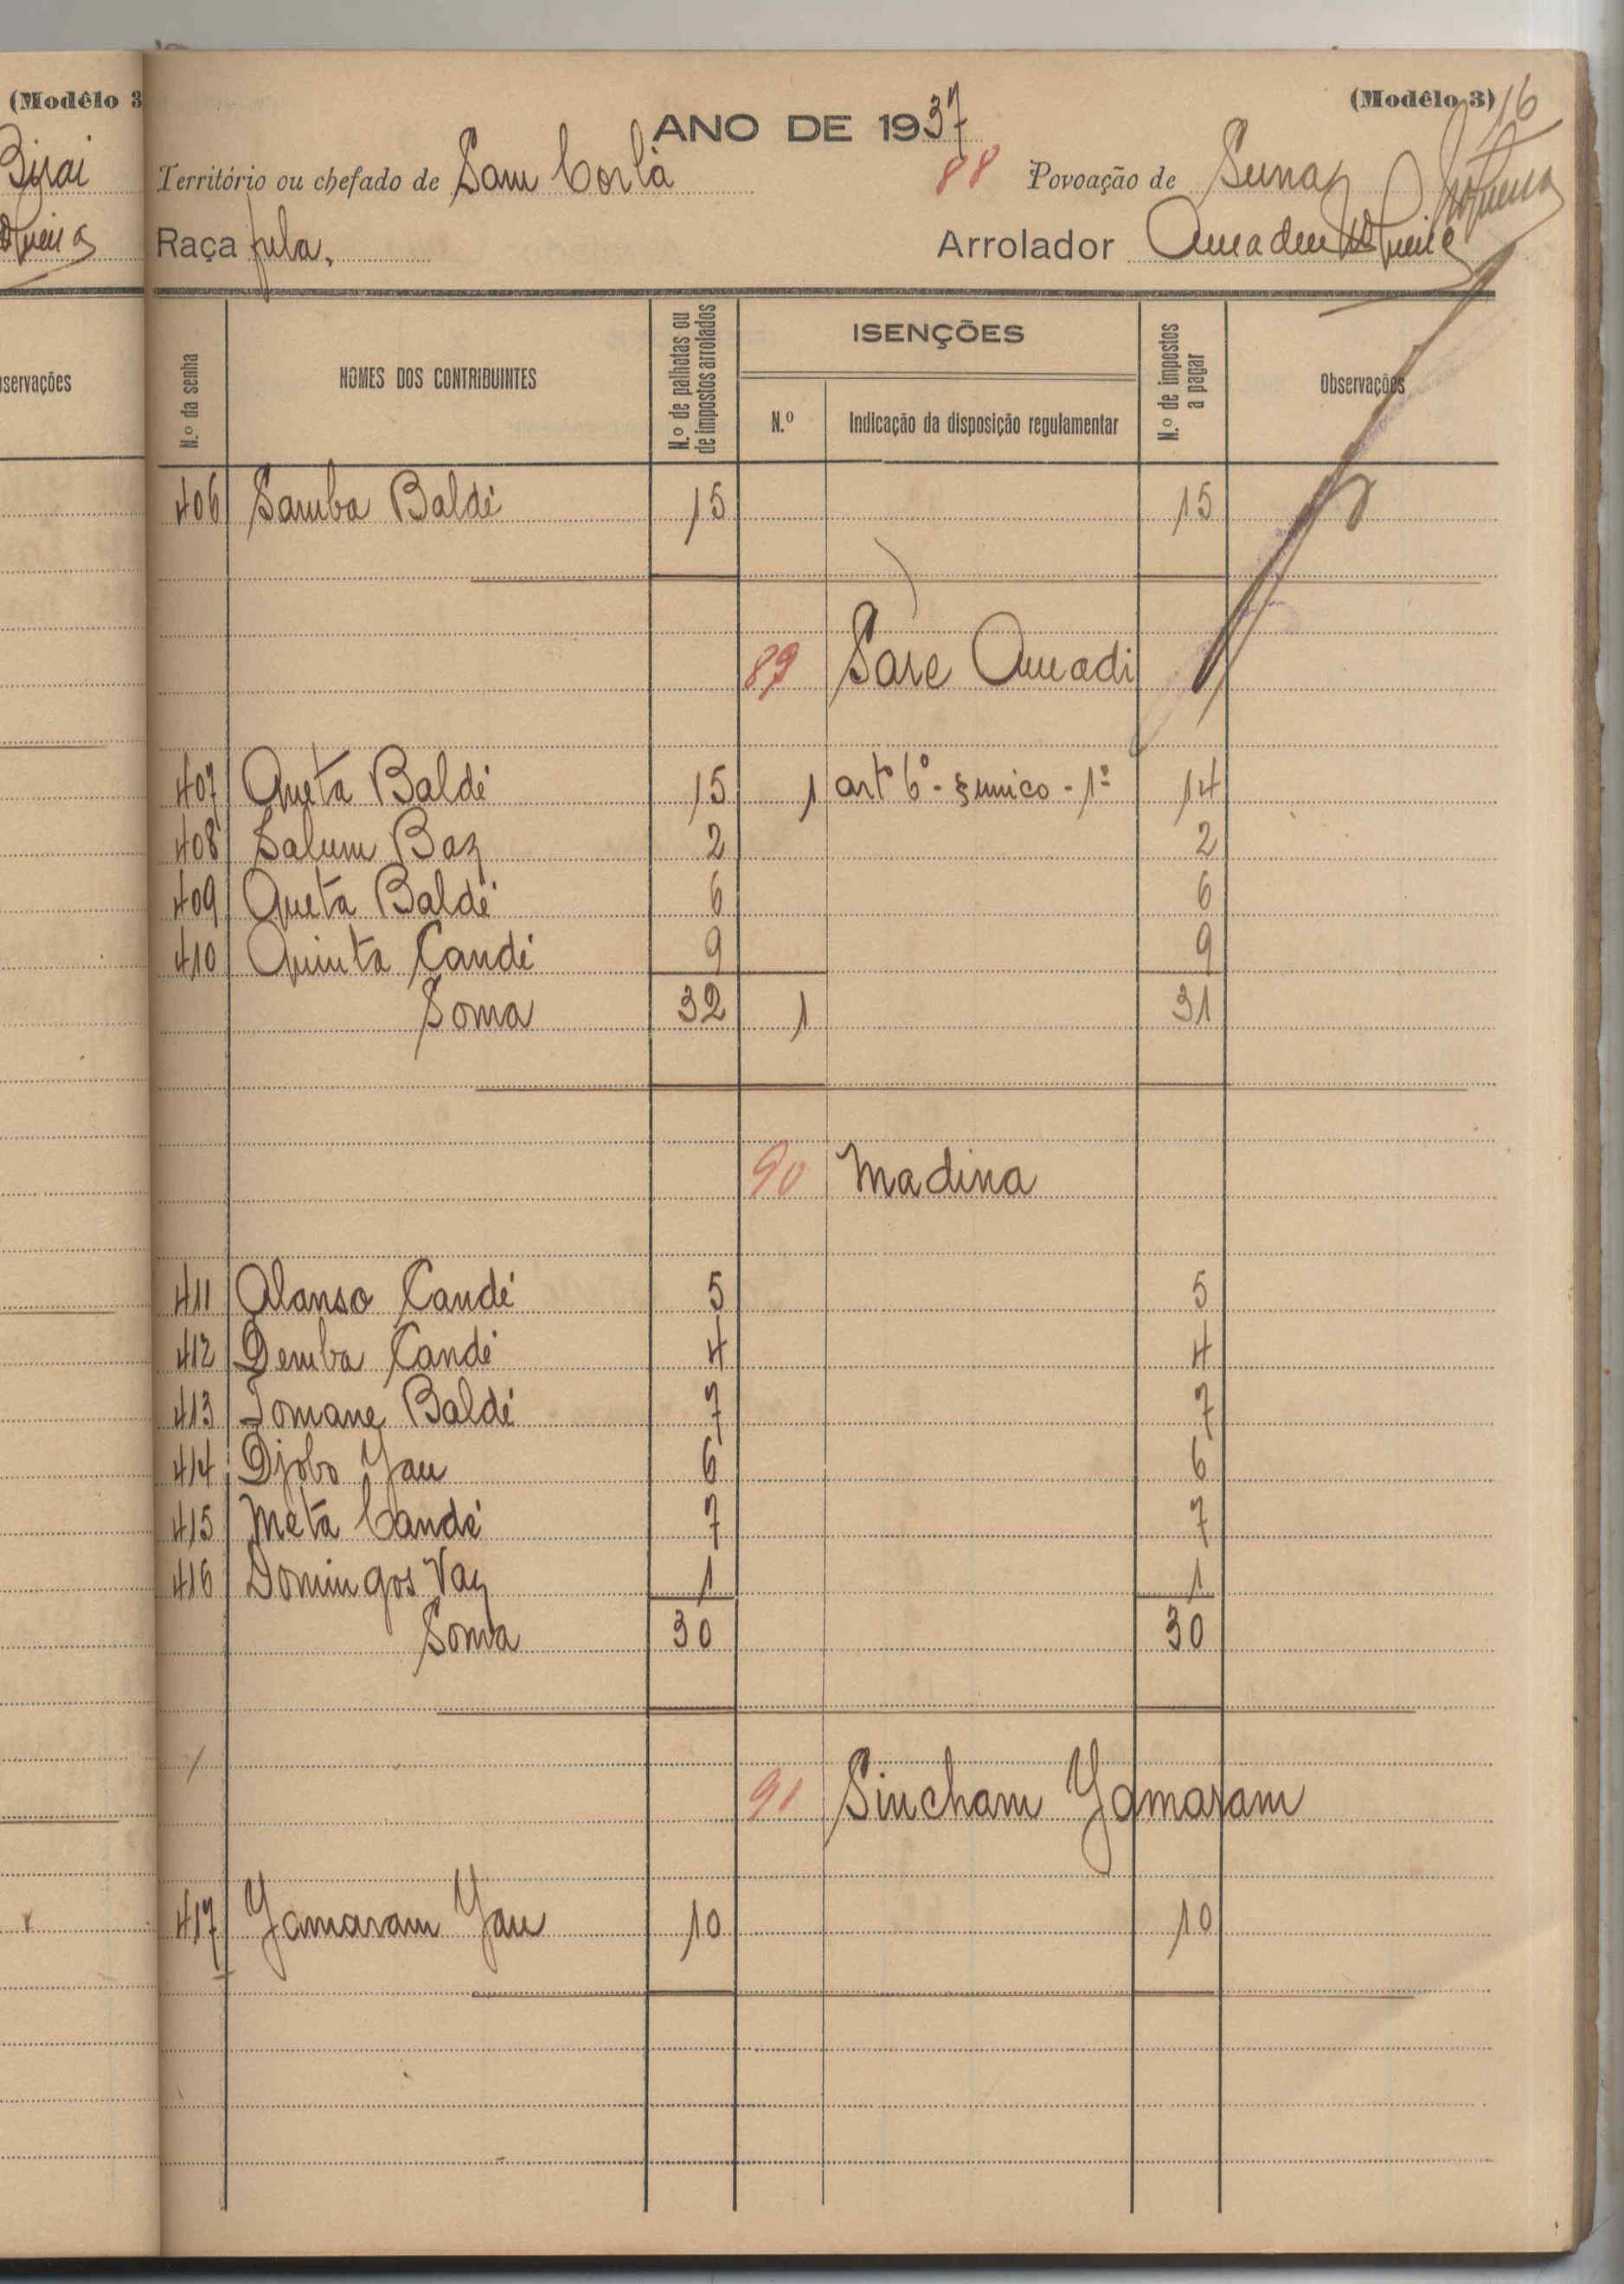 (Modêlo 3
(Modêlo 3) 16
ANO DE 1937
Território ou chefado de Sam Corlá 88 Povoação de Suna
Raça fula, Arrolador Amadeu
servações
N.º da senha
NOMES DOS CONTRIBUINTES
N.º de palhotas ou de impostos arrolados
ISENÇÕES
N.º
Indicação da disposição regulamentar
N.º de impostos a pagar
Observações
406 Samba Baldé 15 15
89 Sare Amadi
407 Queta Baldé 15 1 artº 6º - § unico - 1º 14
408 Salum Baz 2 2
409 Queta Baldé 6 6
410 Quinta Candé 9 9
Soma 32 1 31
90 Madina
411 Alanso Candé 5 5
412 Demba Candé 4 4
413 Tomane Baldé 7 7
414 Djobo Jau 6 6
415 Meta Candé 7 7
416 Domingos Vaz 1 1
Soma 30 30
91 Sincham Yamaram
417 Yamaram Jau 10 10